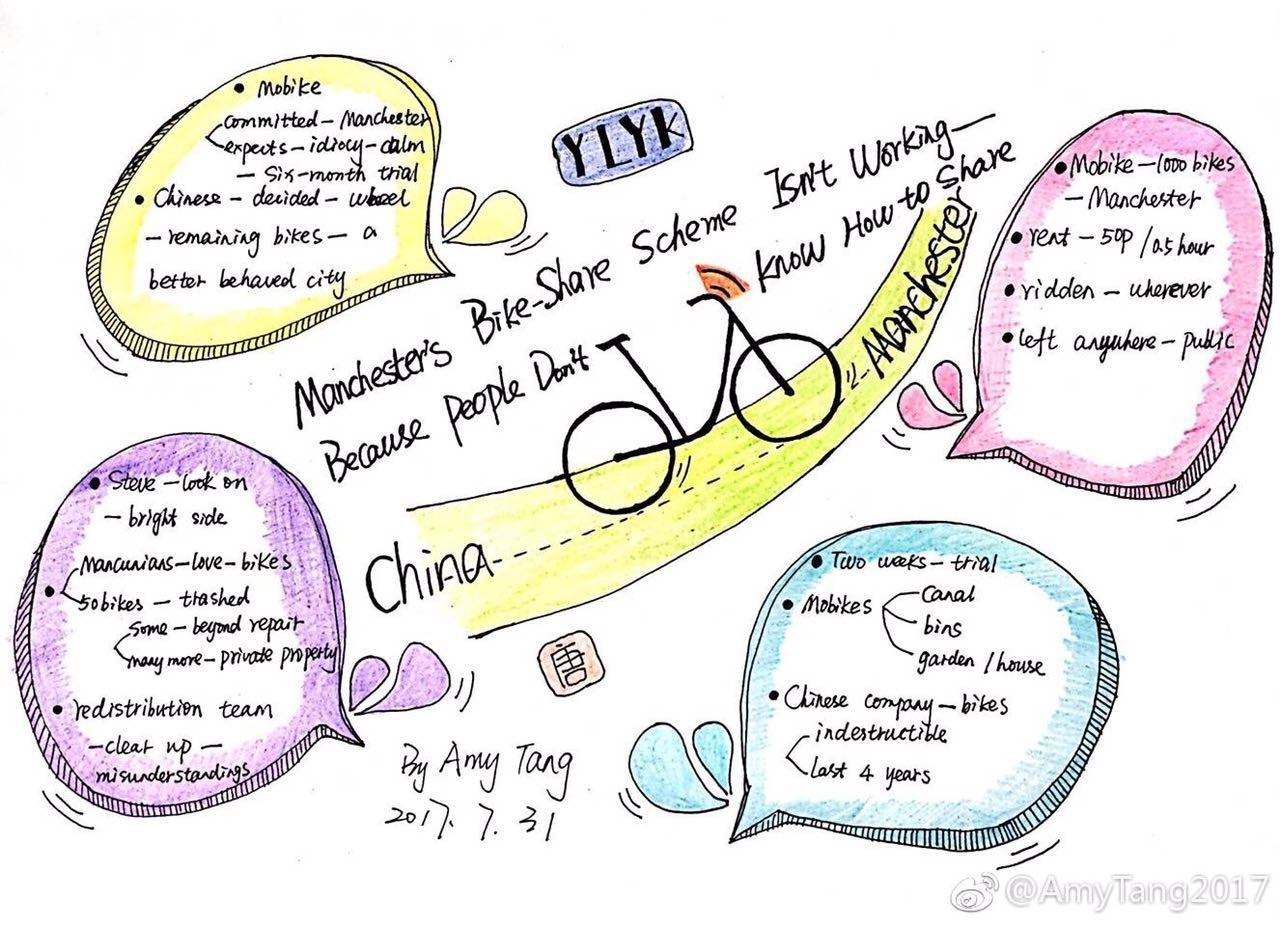 YLYK
Manchester's Bike-Share Scheme Isn't Working-
Because People Don't Know How to Share
China
Manchester
• Mobike - 1000 bikes
- Manchester
• rent - 50p / 0.5 hour
• ridden - wherever
• left anywhere - public
• Two weeks - trial
• Mobikes
Canal
bins
garden / house
• Chinese company - bikes
indestructible
last 4 years
• Steve - look on
- bright side
• Mancunians - love - bikes
50 bikes - trashed
some - beyond repair
many more - private property
• redistribution team
- clear up -
misunderstandings
• Mobike
committed - Manchester
expects - idiocy - calm
- six-month trial
• Chinese - decided - wheel
- remaining bikes - a
better behaved city
By Amy Tang
2017.7.31
@AmyTang2017